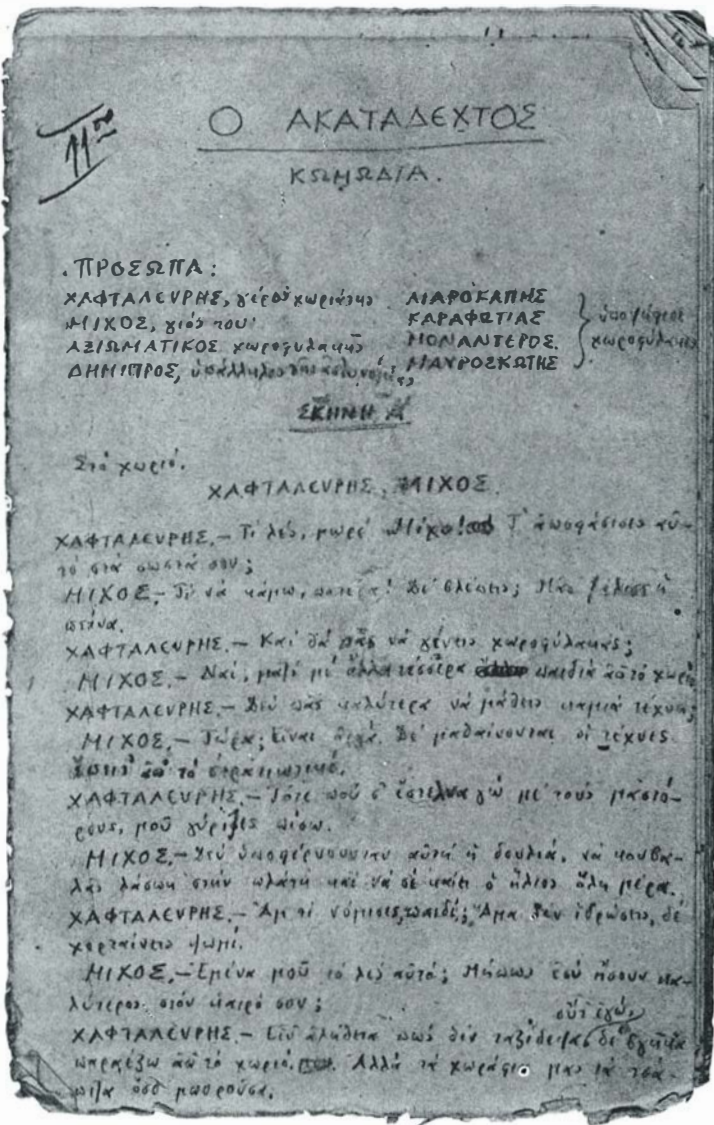 11ον
Ο ΑΚΑΤΑΔΕΧΤΟΣ
ΚΩΜΩΔΙΑ.
ΠΡΟΣΩΠΑ:
ΧΑΦΤΑΛΕΥΡΗΣ, γέρος χωριάτης ΛΙΑΡΟΚΑΠΗΣ
ΜΙΧΟΣ, γιός του ΚΑΡΑΦΩΤΙΑΣ
ΑΞΙΩΜΑΤΙΚΟΣ χωροφυλακῆς ΜΟΝΑΝΤΕΡΟΣ.
ΔΗΜΗΤΡΟΣ, ὑπάλληλος τῆς ἀστυνομίας ΜΑΥΡΟΣΚΩΤΗΣ
ὑποψήφιοι
χωροφύλακες
ΣΚΗΝΗ Α
Στό χωριό.
ΧΑΦΤΑΛΕΥΡΗΣ, ΜΙΧΟΣ.
ΧΑΦΤΑΛΕΥΡΗΣ.– Τί λές, μωρέ Μίχο! Τ' ἀποφάσισες αὐ-
τό στά σωστά σου;
ΜΙΧΟΣ.– Τί νά κάμω, πατέρα! Δέ βλέπεις; Μᾶς ἡ
πείνα.
ΧΑΦΤΑΛΕΥΡΗΣ.– Καί θά πᾶς νά γένεις χωροφύλακας;
ΜΙΧΟΣ.– Ναί, μαζί μέ ἄλλα τέσσερα παιδιά ἀπ τό χωριό
ΧΑΦΤΑΛΕΥΡΗΣ.– Δέν πᾶς καλύτερα νά μάθεις καμιά τέχνη;
ΜΙΧΟΣ.– Τώρα; Εἶναι ἀργά. Δέ μαθαίνονται οἱ τέχνες
ὕστερ' ἀπ' τό στρατιωτικό.
ΧΑΦΤΑΛΕΥΡΗΣ.– Τότε πού σ' ἔστελνα γώ μέ τούς μαστό-
ρους, μοῦ γύριζες πίσω.
ΜΙΧΟΣ.– Δέν ὑποφέρνουνταν αὐτή ἡ δουλιά, νά κουβα-
λᾶς λάσπη στήν πλάτη καί νά σέ καίει ὁ ἥλιος ὅλη μέρα.
ΧΑΦΤΑΛΕΥΡΗΣ.– Ἀμ τί νόμισες, παιδί; Ἅμα δέν ἱδρώσεις, δέ
χορταίνεις ψωμί.
ΜΙΧΟΣ.– Ἐμένα μοῦ τό λές αὐτό; Μήπως ἐσύ ἤσουν κα-
λύτερος στόν καιρό σου;
οὔτ' ἐγώ,
ΧΑΦΤΑΛΕΥΡΗΣ.– Εἶν' ἀλήθεια πώς δέν ταξίδεψα δέ βγῆκα
παραέξω ἀπ τό χωριό. Ἀλλά τά χωράφια μας τά τσά-
πιζα ὅσο μποροῦσα.